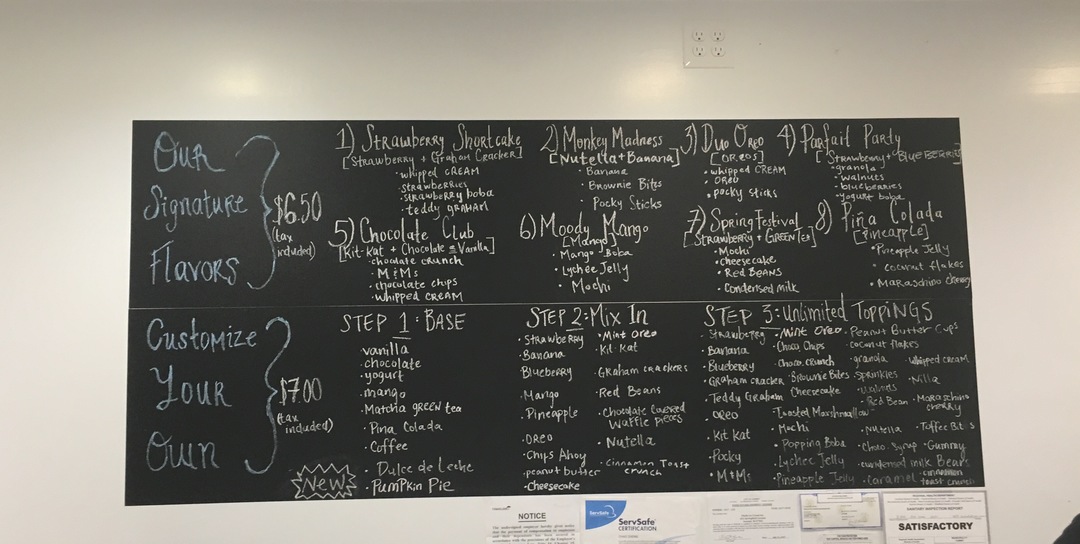 Our
Signature
Flavors
$6.50
(tax
included)
1) Strawberry Shortcake
[Strawberry + Graham Cracker]
· whipped CREAM
· STRAWBERRIES
· STRAWBERRY boba
· teddy GRAHAM
2) Monkey Madness
[Nutella+Banana]
· Banana
· Brownie Bits
· Pocky Sticks
3) Duo Oreo
[OREOS]
· whipped CREAM
· OREO
· Pocky sticks
4) Parfait Party
[Strawberry + Blue BERRIES]
· granola
· walnuts
· blueberries
· Yogurt boba
5) Chocolate Club
[Kit-Kat + Chocolate = Vanilla]
· chocolate crunch
· M & Ms
· chocolate chips
· whipped CREAM
6) Moody Mango
[Mango]
· Mango Boba
· Lychee Jelly
· Mochi
7) Spring Festival
[Strawberry + GREEN Tea]
· Mochi
· cheesecake
· Red BEANS
· Condensed Milk
8) Piña Colada
[Pineapple]
· Pineapple Jelly
· coconut flakes
· MARASCHINO cherry
Customize
Your
Own
$7.00
(tax
included)
STEP 1: BASE
vanilla
· chocolate
· yogurt
· mango
· Matcha GREEN tea
· Pina Colada
· Coffee
· Dulce de Leche
New
· Pumpkin Pie
STEP 2: Mix In
· Strawberry
· Banana
Blueberry
· Mango
· Pineapple
· OREO
· Chips Ahoy
· peanut butter
· Cheesecake
· Mint Oreo
· Kit Kat
· Graham crackers
· Red Beans
· Chocolate Covered
Waffle pieces
· Nutella
· Cinnamon Toast
crunch
STEP 3: Unlimited Toppings
· Strawberry
· Banana
· Blueberry
· Graham cracker
· Teddy Graham
· OREO
· Kit Kat
· Pocky
· M & Ms
· Mint Oreo
Choco Chips
· Choco crunch
· Brownie Bites
Cheesecake
Toasted Marshmallow
· Mochi
· Popping Boba
· Lychee Jelly
· Pineapple Jelly
· Peanut Butter Cups
· coconut flakes
· granola
· Sprinkles
· walnuts
· Red Bean
· Nutella
· Choco Syrup
· condensed milk
· Caramel
whipped cream
· Nilla
· Maraschino
cherry
· Toffee Bits
· Gummy
Bears
· cinnamon
toast crunch
NOTICE
ServSafe
ServSafe
CERTIFICATION
SANITARY INSPECTION REPORT
SATISFACTORY